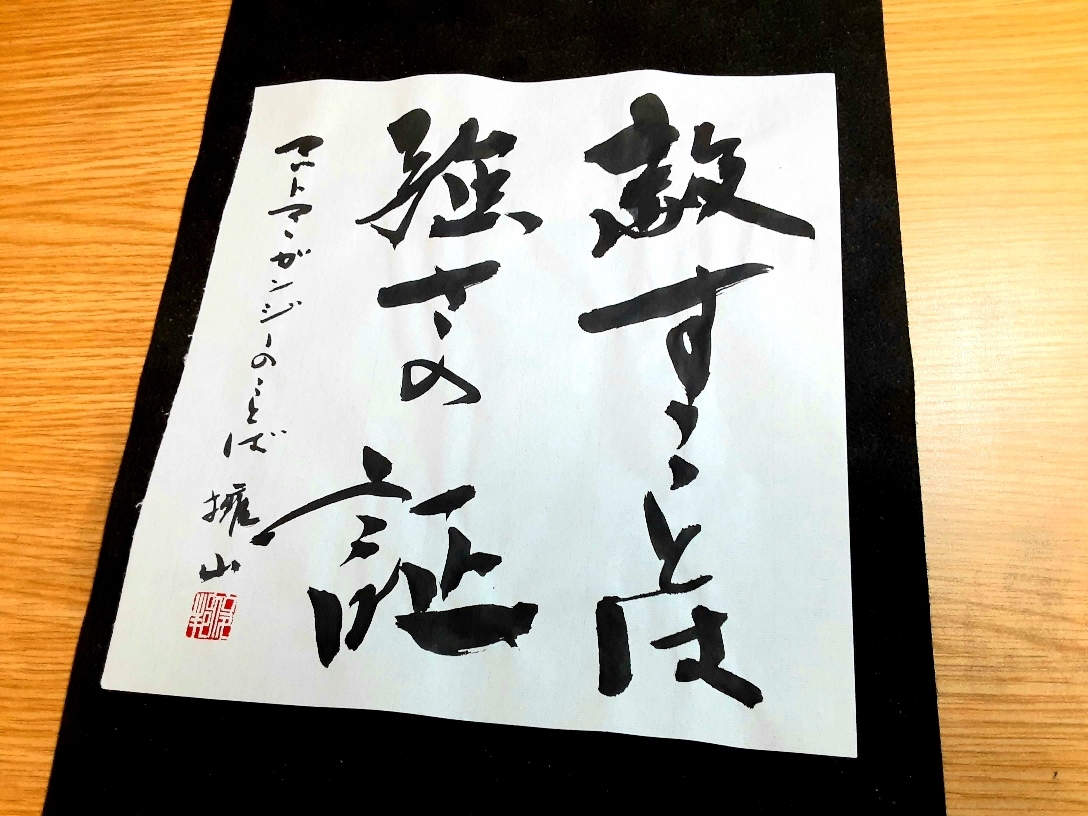 赦すことは
強さの証
マハトマ・ガンジーのことば
山